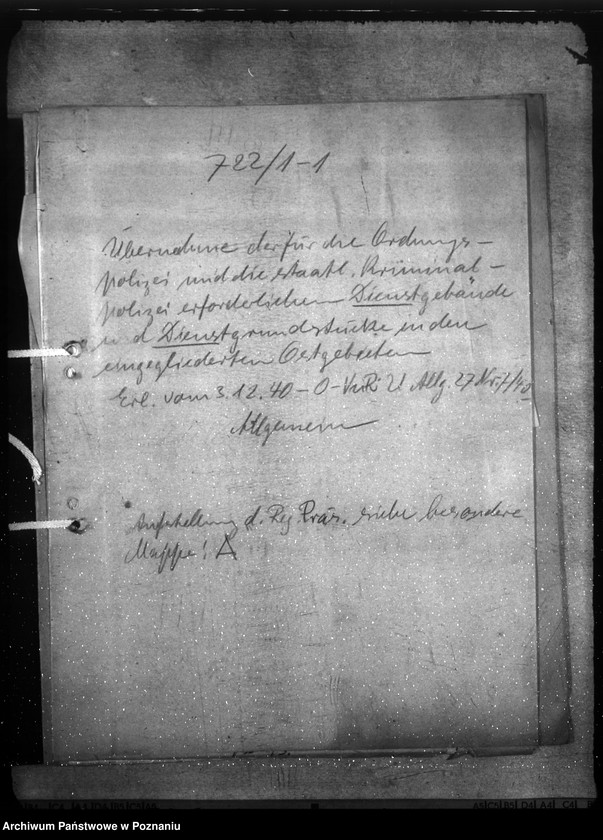 722/1-1
Übernahme der für die Ordnungs-
polizei und die staatl. Kriminal-
polizei erforderlichen Dienstgebäude
und Dienstgrundstücke in den
eingegliederten Ostgebieten
Erl. vom 3.12.40 - O-VuR U Allg. 27 Nr. 7/40
Allgemein
Aufstellung d. Reg. Präs. siehe besondere
Mappe! A
Archiwum Państwowe w Poznaniu